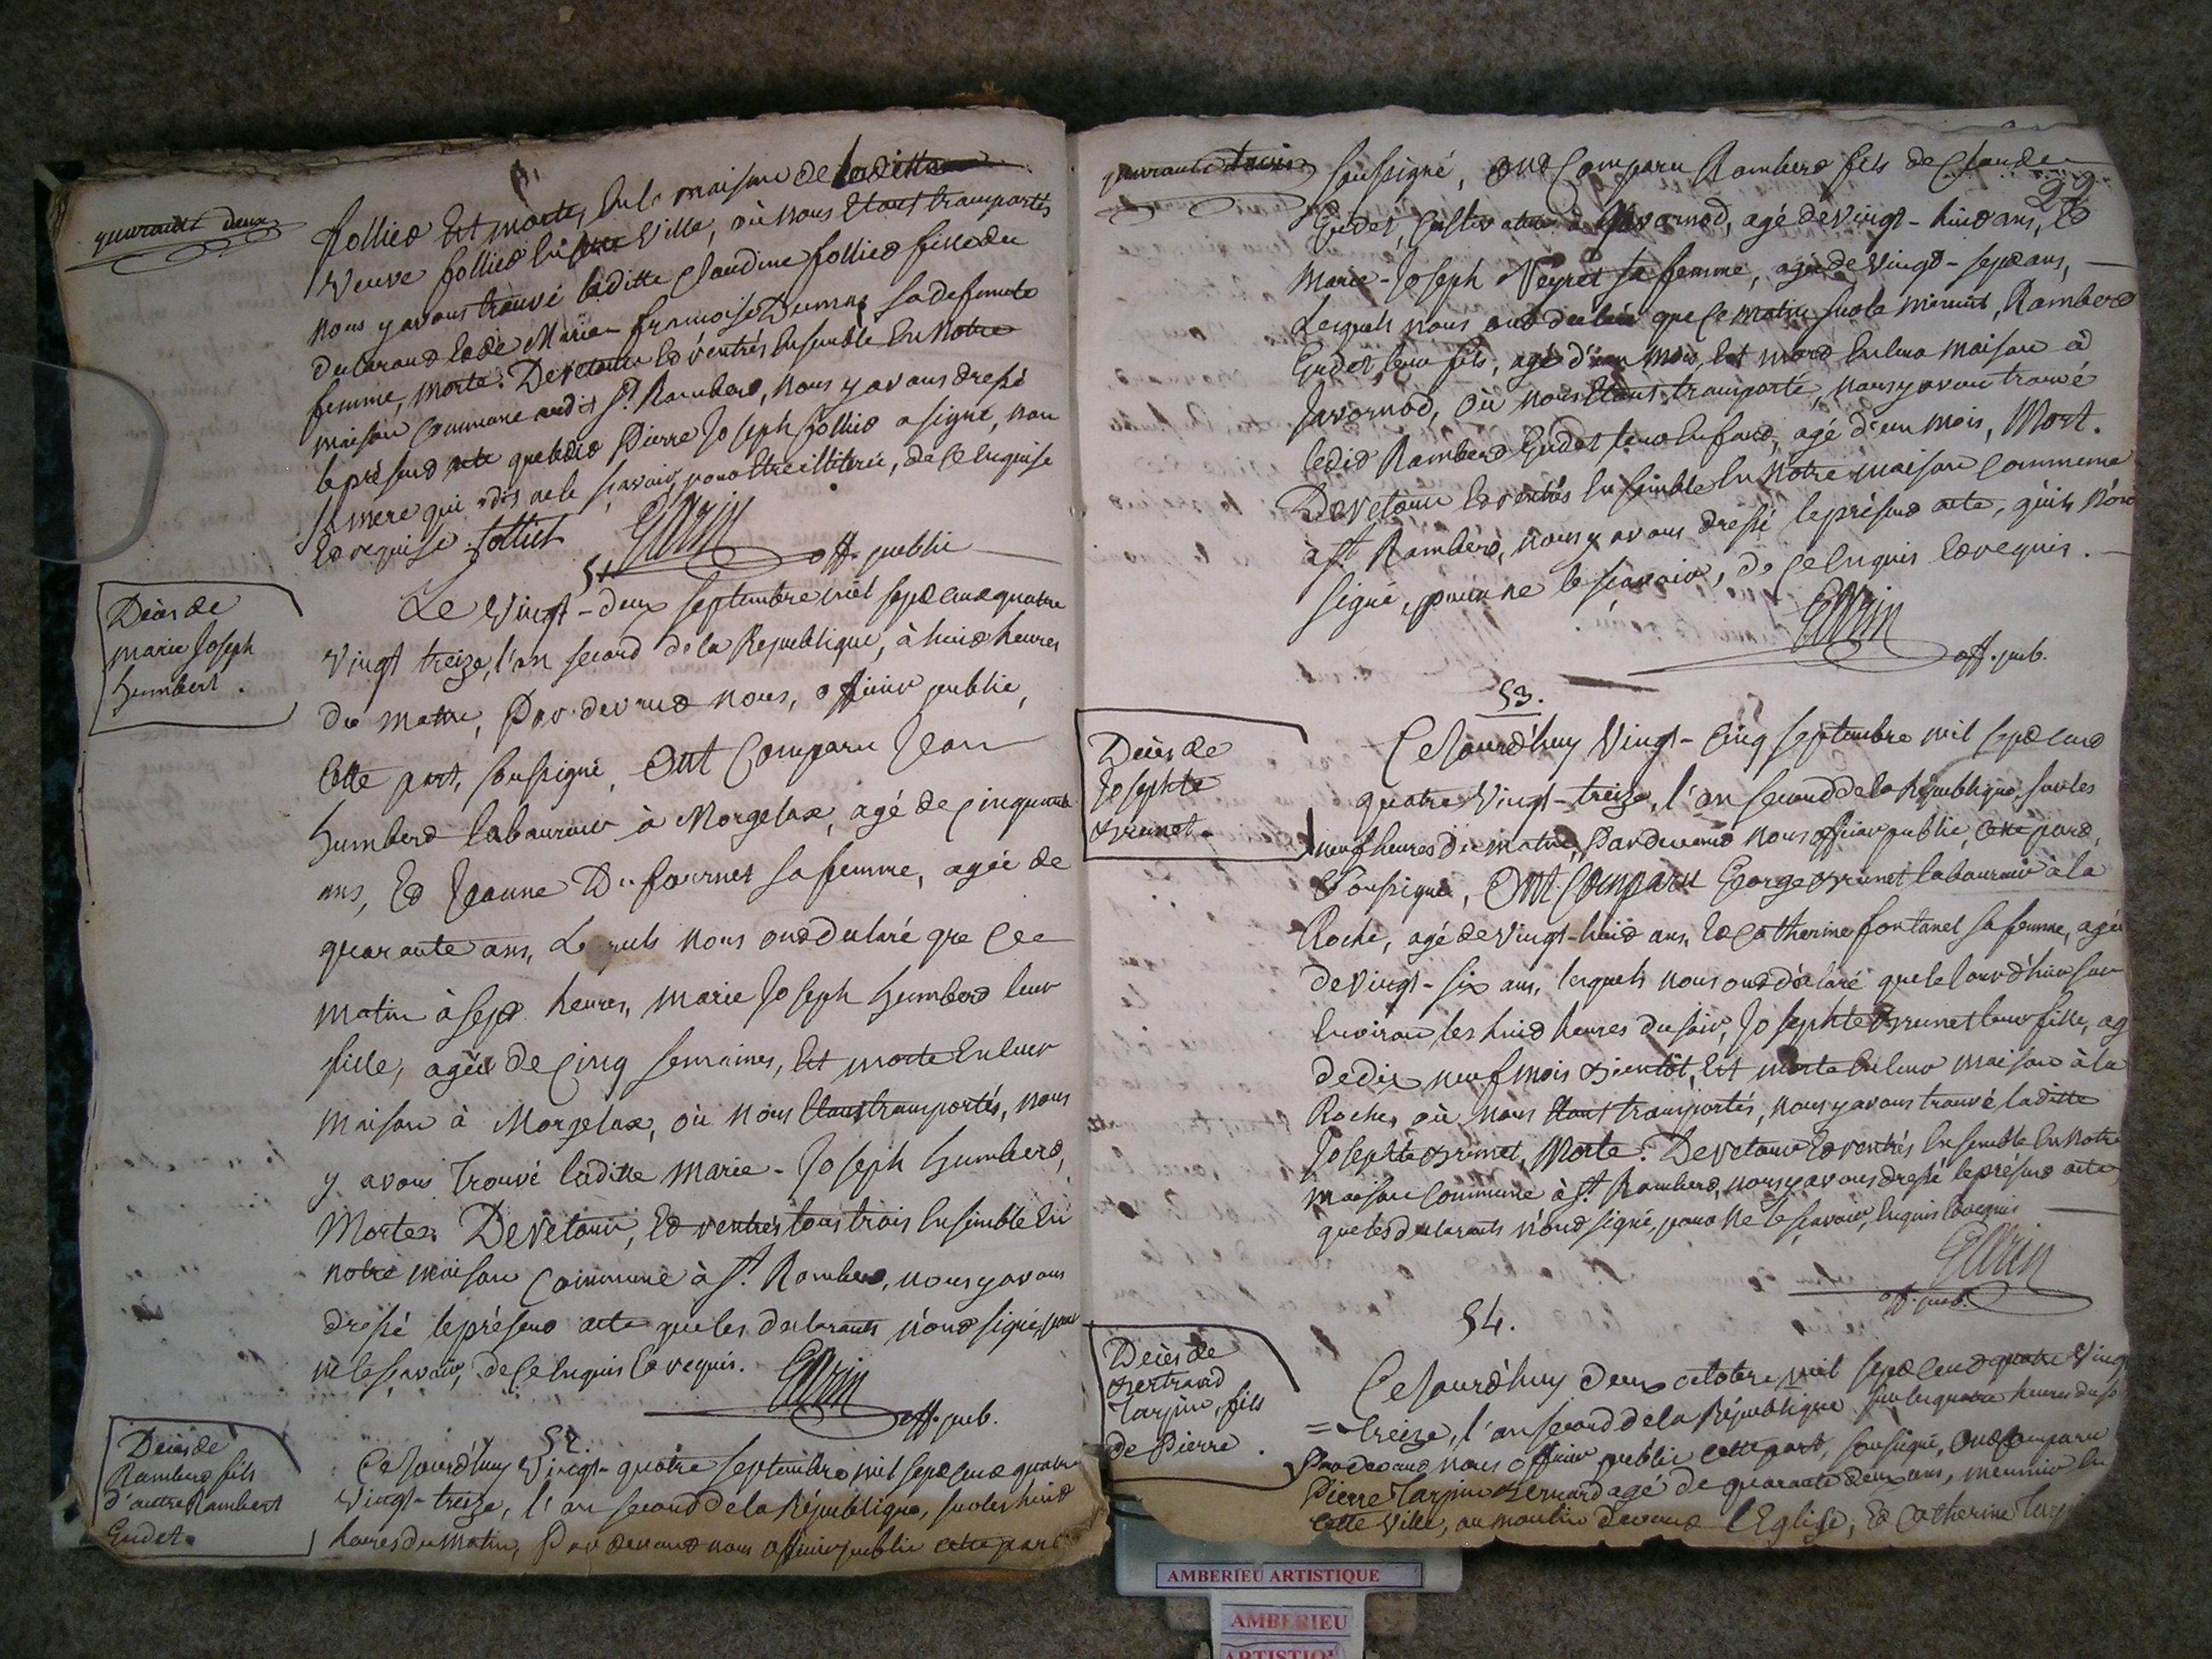 quarante deux
folliet Est morte, En la maison de laditte
veuve folliet En cette Ville, où nous Etant transportés
nous y avons trouvé laditte Claudine folliet fille du
declarant Et de Marie françoise Dumas sa defunte
femme, morte. De retour Et rentrés Ensemble En notre
maison Commune audit St. Rambert, nous y avons dressé
le présent acte que ledit Pierre Joseph folliet a signé, non
sa mere qui a dit ne le sçavoir, pour Etre illiterée, de ce Enquise
Et requise. folliet
off. public
51
Déces de
marie Joseph
humbert.
Le Vingt-deux septembre mil sept cent quatre
vingt treize, l'an second de la Republique, à huit heures
du matin, Par devant nous, officier public,
cette part, soussigné, Ont Comparu Jean
humbert laboureur à Morgelax, agé de cinquante
ans, Et Jeanne Dufournet sa femme, agée de
quarante ans, Lesquels nous ont declaré que Ce
matin à sept heures, marie Joseph humbert leur
fille, agée de Cinq semaines, Est morte En leur
maison à Morgelax, où nous Etant transportés, nous
y avons trouvé laditte marie-Joseph humbert,
Morte. De retour, Et rentrés tous trois Ensemble En
notre maison Commune à St. Rambert, nous y avons
dressé le présent acte que les declarants n'ont signé, pour
ne le sçavoir, de ce Enquis Et requis.
off. pub.
52.
Déces de
Rambert fils
d'autre Rambert
Gudet.
Ce Jourd'huy Vingt-quatre septembre mil sept cent quatre
Vingt-treize, l'an second de la République, sur les huit
heures du matin, Par devant nous officier public cette part
quarante trois
22
soussigné, Ont Comparu Rambert fils de Claude
Gudet, Cultivateur à Javornod, agé de vingt-huit ans, Et
Marie-Joseph Neyret sa femme, agée de Vingt-sept ans,
Lesquels nous ont declaré que Ce matin sur le minuit, Rambert
Gudet leur fils, agé d'un mois, Est mort En leur maison à
Javornod, Où nous Etant transporté, nous y avons trouvé
ledit Rambert Gudet leur Enfant, agé d'un mois, Mort.
De retour Et rentrés Ensemble En Notre maison Commune
à St. Rambert, nous y avons dressé le présent acte, qu'ils n'ont
signé, pour ne le sçavoir, de Ce Enquis Et requis.
off. pub.
53.
Déces de
Josephte
Brunet.
Ce Jourd'huy Vingt-Cinq septembre mil sept cent
quatre Vingt-treize, l'an second de la République, sur les
neuf heures du matin, Par devant nous officier public, cette part,
Soussigné, Ont Comparu George Brunet laboureur à la
Roche, agé de Vingt-huit ans, Et Catherine fontanel sa femme, agée
de vingt-six ans, lesquels nous ont déclaré que le Jour d'hier sur
Environ les huit heures du soir, Josephte Brunet leur fille, ag
de dix neuf mois Bientôt, Est morte En leur maison à la
Roche, où nous Etant transportés, nous y avons trouvé laditte
Josephte Brunet, Morte. De retour Et rentrés Ensemble En notre
maison Commune à St. Rambert, nous y avons dressé le présent acte
que les declarants n'ont signé, pour ne le sçavoir, Enquis Et requis
off. pub.
54.
Déces de
Bertrand
Tarpin, fils
de Pierre.
Ce Jourd'huy deux octobre mil sept cent quatre Vingt
= treize, l'an second de la République sur les quatre heures du so
Par devant nous officier public cette part, soussigné, Ont Comparu
Pierre Tarpin Bernard agé de quarante deux ans, meunier En
cette Ville, au moulin devant l'Eglise, Et Catherine
AMBERIEU ARTISTIQUE
AMBERIEU
ARTISTIQUE